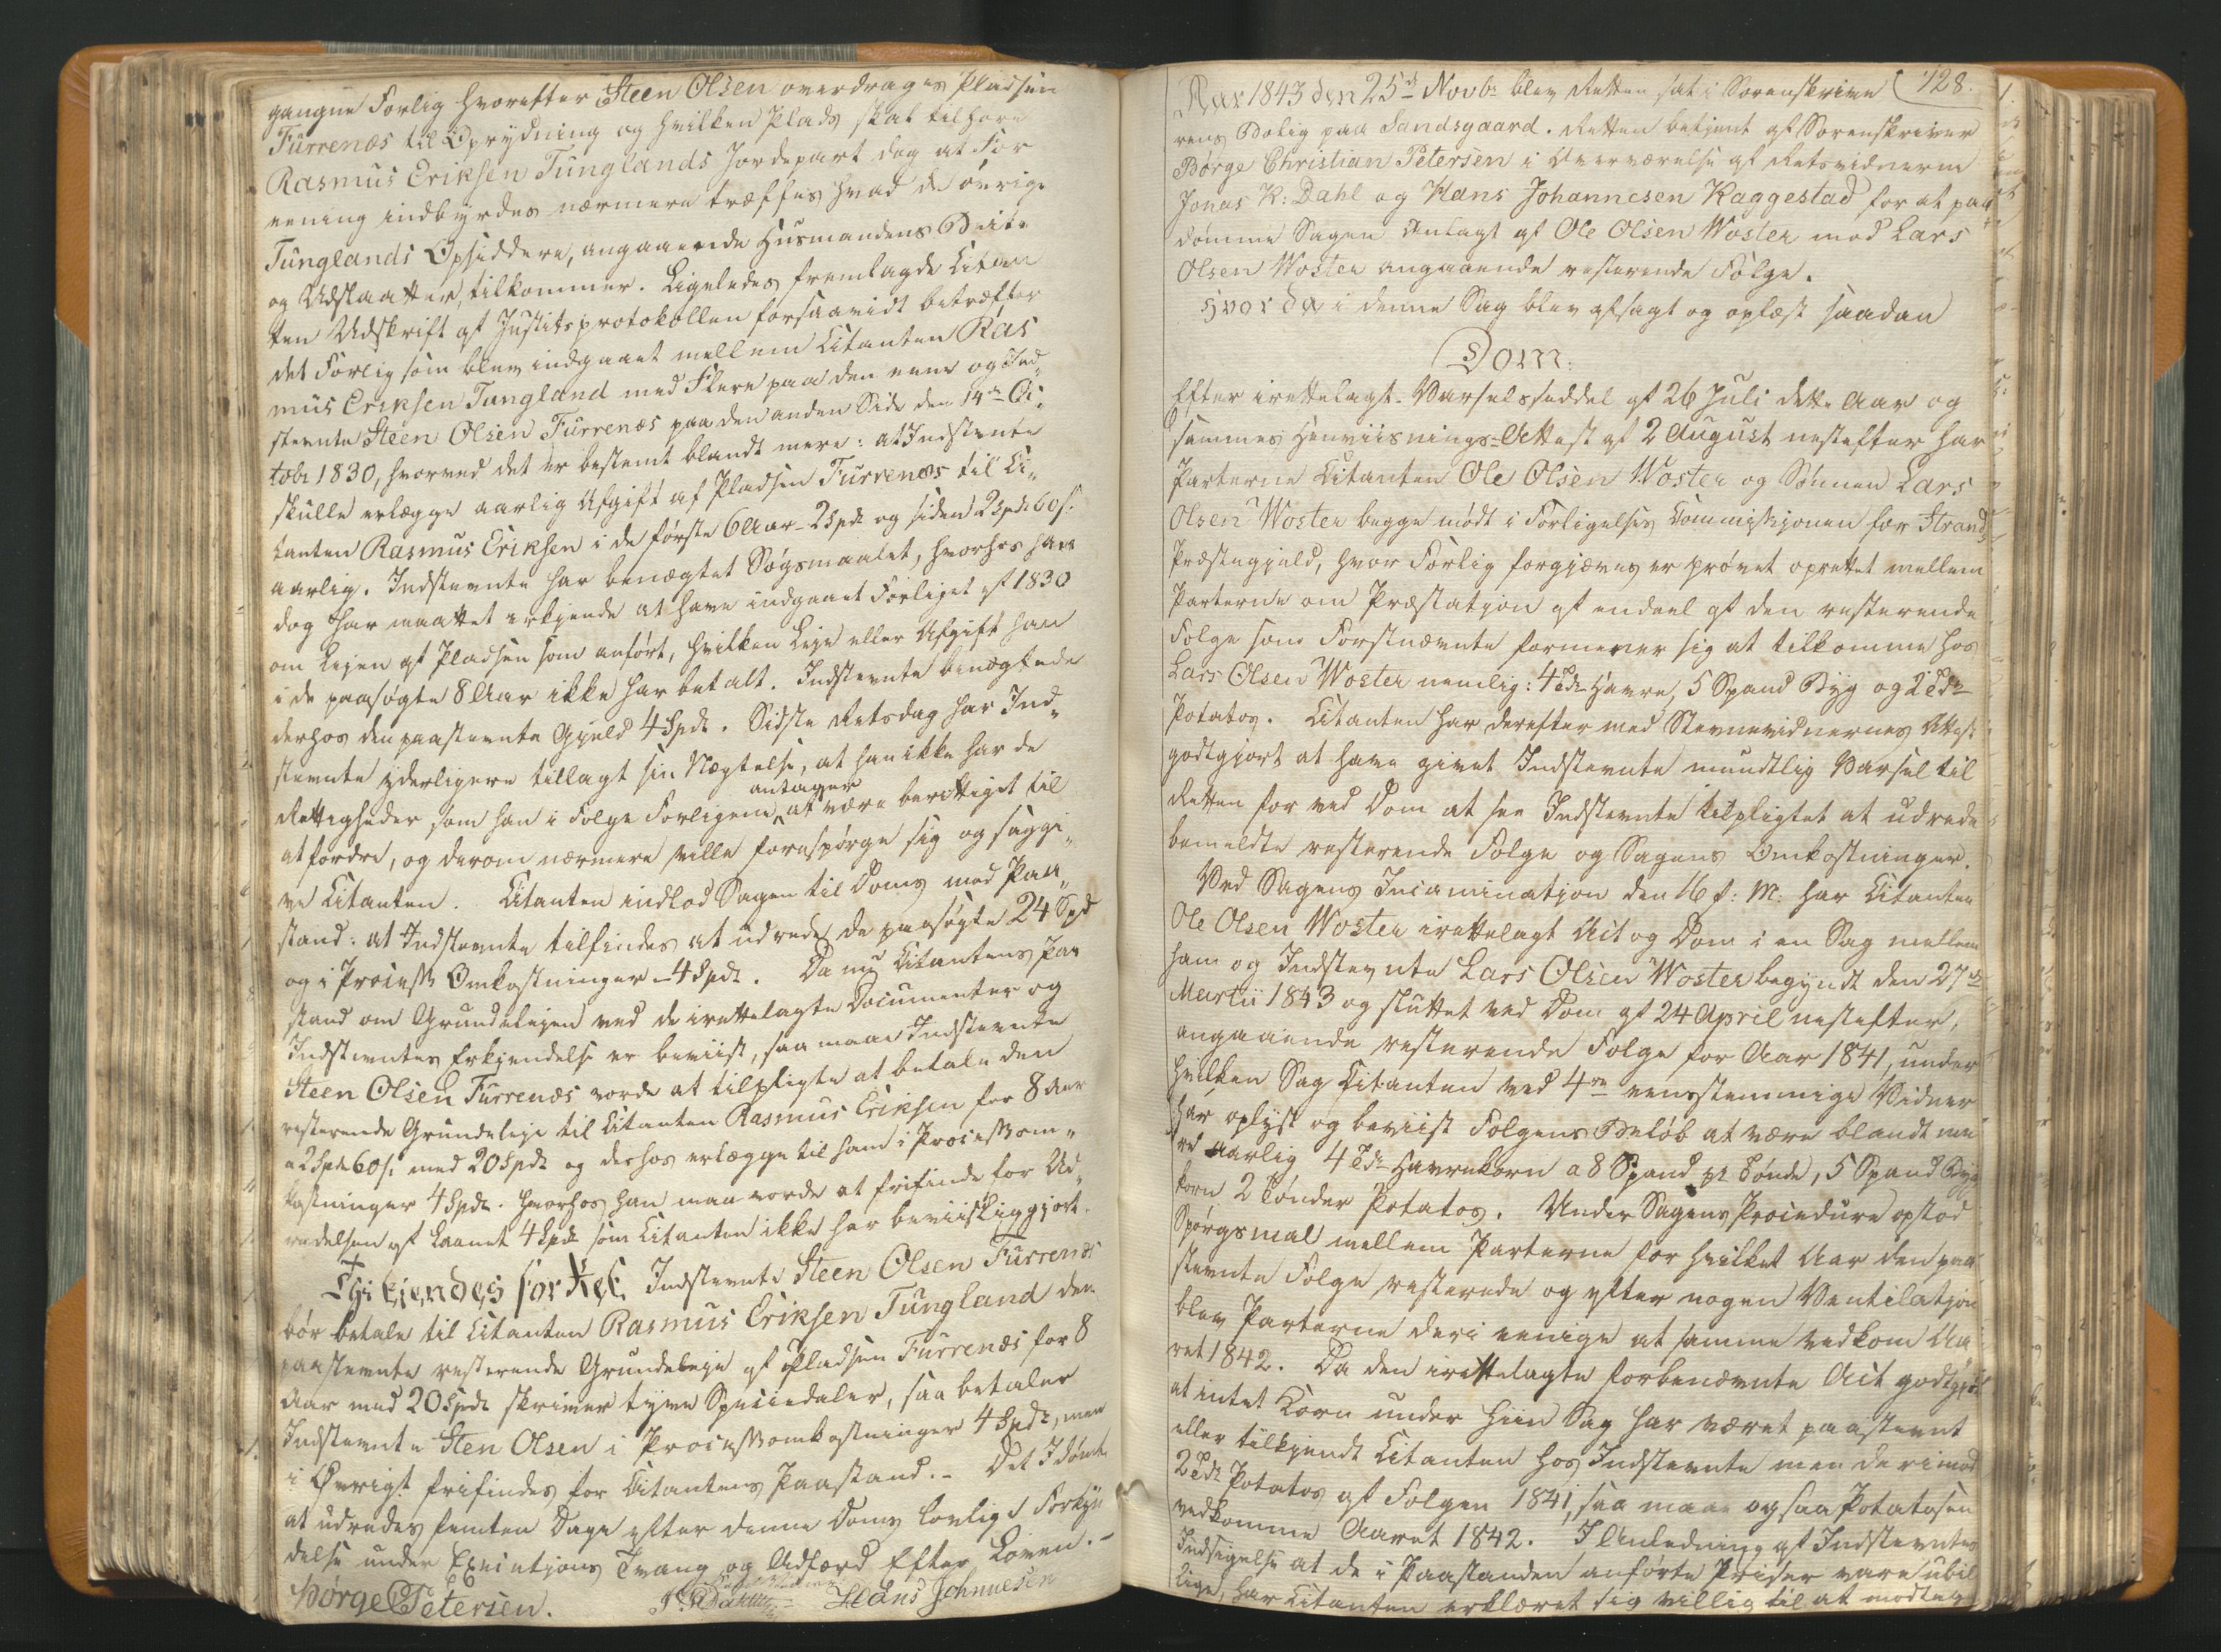 gangne Forlig hvorefter Steen Olsen overdrages Pladsen
Furrenæs til Oprydning og hvilken Plads skal tilhøre
Rasmus Eriksen Tunglands Jordepart dog at For
eening indbyrdes nærmere træffes hvad de øvrige
Tunglands Opsiddere, angaaende Husmandens Beite
og Udslaatter, tilkommer. Ligeledes fremlagde Citan
ten Udskrift af Justitsprotokollen forsaavidt betræffer
det Forlig som blev indgaaet mellem Citanten Ras
mus Eriksen Tungland med Flere paa den eene og Ind„
stevnte Steen Olsen Furrenæs paa den anden Side den 14de Oc„
tobr 1830, hvorved det er bestemt blandt mere: at Indstevnte
skulle erlægge aarlig Afgift af Pladsen Furrenæs til Ci„
tanten Rasmus Eriksen i de første 6 Aar 2 Spdr og siden 2 Spdr 60 s.
aarlig. Indstevnte har benægtet Søgsmaalet, hvorhos han
dog har maattet erkjende at have indgaaet Forliget af 1830
om Lejen af Pladsen som anført, hvilken Leje eller Afgift han
i de paasøgte 8 Aar ikke har betalt. Indstevnte benægtede
derhos den paastevnte Gjeld 4 Spdr. Sidste Retsdag har Ind„
stevnte yderligere tillagt sin Nægtelse, at han ikke har de
Rettigheder som han i Følge Forligene antager at være berettiget til
at fordre, og derom nærmere ville forespørge sig og saggi„
ve Citanten. Citanten indlod Sagen til Doms med Paa„
stand: at Indstevnte tilfindes at udrede de paasøgte 24 Spd
og i Process Omkostninger 4 Spdr. Da nu Citantens Paa
stand om Grundelejen ved de irettelagte Documenter og
Indstevntes Erkjendelse er beviist, saa maae Indstevnte
Steen Olsen Furrenæs vorde at tilpligte at betale den
resterende Grundeleje til Citanten Rasmus Eriksen for 8 Aar
a 2 Spdr 60 s. med 20 Spdr og derhos erlægge til ham i Processom„
kostninger 4 Spdr. hvorhos han maa vorde at frifinde for Ud„
redelsen af Laanet 4 Spdr som Citanten ikke har beviisliggjort.
Thi kjendes for Ret: Indstevnte Steen Olsen Furrenæs
bør betale til Citanten Rasmus Eriksen Tungland den
paastevnte resterende Grundeleje af Pladsen Furrenæs for 8
Aar med 20 Spdr skriver tyve Speciedaler, saa betaler
Indstevnte Sten Olsen i Processomkostninger 4 Spdr, men
i Øvrigt frifindes for Citantens Paastand. – Det Idømte
at udredes femten Dage efter denne Doms lovlige Forkyn
delse under Executions Tvang og Adfærd Efter Loven. –
Børge C Petersen. J. K. Dahl Hans Johnnesen
128.
Aar 1843 den 25de Novbr blev Retten sat i Sorenskrive
rens Bolig paa Sandsgaard. Retten betjent af Sorenskriver
Børge Christian Petersen i Overværelse af Retsvidnerne
Jonas K: Dahl og Hans Johannesen Kaggestad for at paa„
dømme Sagen Anlagt af Ole Olsen Woster mod Lars
Olsen Woster angaaende resterende Følge.
Hvorda i denne Sag blev afsagt og oplæst saadan
Dom:
Efter irettelagt Varselsseddel af 26 Juli dette Aar og
sammes Henviisnings-Attest af 2 August nestefter har
Parterne Citanten Ole Olsen Woster og Sønnen Lars
Olsen Woster begge mødt i Forligelses Commissionen for Strands
Præstegjeld, hvor Forlig forgjæves er prøvet oprettet mellem
Parterne om Præstation af endeel af den resterende
Følge som Førstnævnte formener sig at tilkomme hos
Lars Olsen Woster nemlig: 4 Tdr Havre, 5 Spand Byg og 2 Tdr
Potatos. Citanten har derefter med Stevnevidnernes Attest
godtgjort at have givet Indstevnte mundtlig Varsel til
Retten for ved Dom at see Indstevnte tilpligtet at udrede
bemeldte resterende Følge og Sagens Omkostninger.
Ved Sagens Incamination den 16 f: M: har Citanten
Ole Olsen Woster irettelagt Act og Dom i en Sag mellem
ham og Indstevnte Lars Olsen Woster begyndt den 27de
Martii 1843 og sluttet ved Dom af 24 April nestefter,
angaaende resterende Følge for Aar 1841, under
hvilken Sag Citanten ved 4re eensstemmige Vidner
har oplyst og beviist Følgens Beløb at være blandt me
re aarlig 4 Tdr Havrekorn a 8 Spand pr Tønde, 5 Spand Byg
korn 2 Tønder Potatos. Under Sagens Procedure opstod
Spørgsmal mellem Parterne for hvilket Aar den paa
stevnte Følge resterede og efter nogen Ventilation
blev Parterne deri eenige at samme vedkom Aa
ret 1842. Da den irettelagte forbenævnte Act godtgjør
at intet Korn under hiin Sag har været paastevnt
eller tilkjendt Citanten hos Indstevnte men derimod
2 Tdr Potatos af Følgen 1841, saa maae ogsaa Potatosen
vedkomme Aaret 1842. I Anledning af Indstevntes
Indsigelse at de i Paastanden anførte Priser vare ubil
lige, har Citanten erklæret sig villig til at modtage